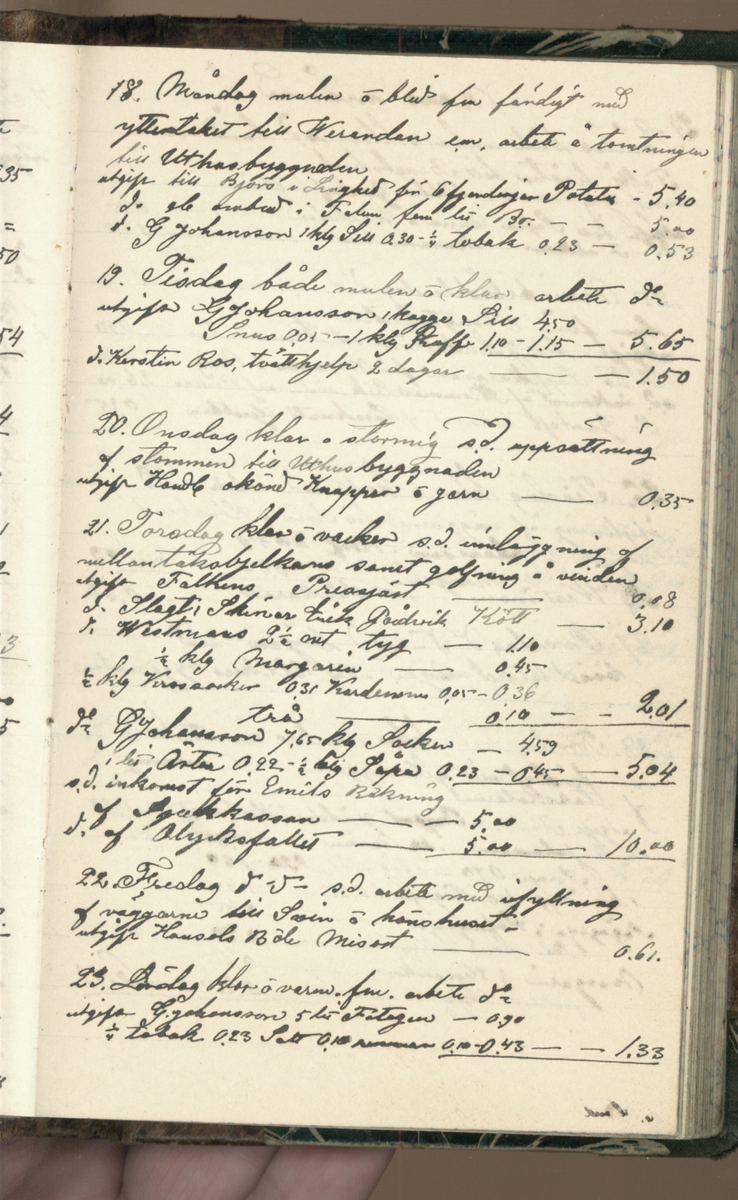 18. Måndag mulen ö blid fm färdigt med
yttertaket till Werandan em. arbete å tomtningen
till Uthusbyggnaden
utgift till Björs i Linghed för 6 fjerdingar Potatis - 5.40
do i Falun fem 30 - - 5.00
d. G Johansson 1 klg Sill 0.30 - ¼ tobak 0.23 - 0.53
19. Tisdag både mulen ö klar arbete do
utgift G Johansson 1 kagge Sill 4.50
Snus 0.05 - 1 klg Kaffe 1.10 - 1.15 - 5.65
d. Kerstin Ros, tvätthjelp 2 dagar - - 1.50
20. Onsdag klar o stormig s.d. uppsättning
af stommen till Uthusbyggnaden
utgift Handl. okänd Knappar ö garn - 0.35
21. Torsdag klar ö vacker s.d. inläggning af
mellantaksbjelkarne samt golfning å vinden
utgift Falkens Pressjäst - 0.08
d. Slagt. Skinar Erik Kött - 3.10
d. Westmans 2½ mt tyg - 1.10
½ klg Margarin - 0.45
½ klg Krossocker 0.31 Kardemma 0.05 - 0.36
trå - 0.10 - - 2.01
do G Johansson 7,65 klg Socker - 4.59
1 lit Ärter 0.22 - ½ klg Såpa 0.23 - 0.45 - 5.04
s.d. inkomst för Emils Räkning
af Sjukkassan - - 5.00
d. af Olycksfallet - 5.00 - 10.00
22. Fredag d - d - s.d. arbete med ifyllning
af väggarne till Svin ö hönshuset -
utgift Hansols Böle Misost - 0.61.
23. Lördag klar ö varm. fm. arbete do
utgift G. Johansson 5 lit Fotogen - 0.90
¼ tobak 0.23 Salt 0.10 0.10 - 0.43 - - 1.33